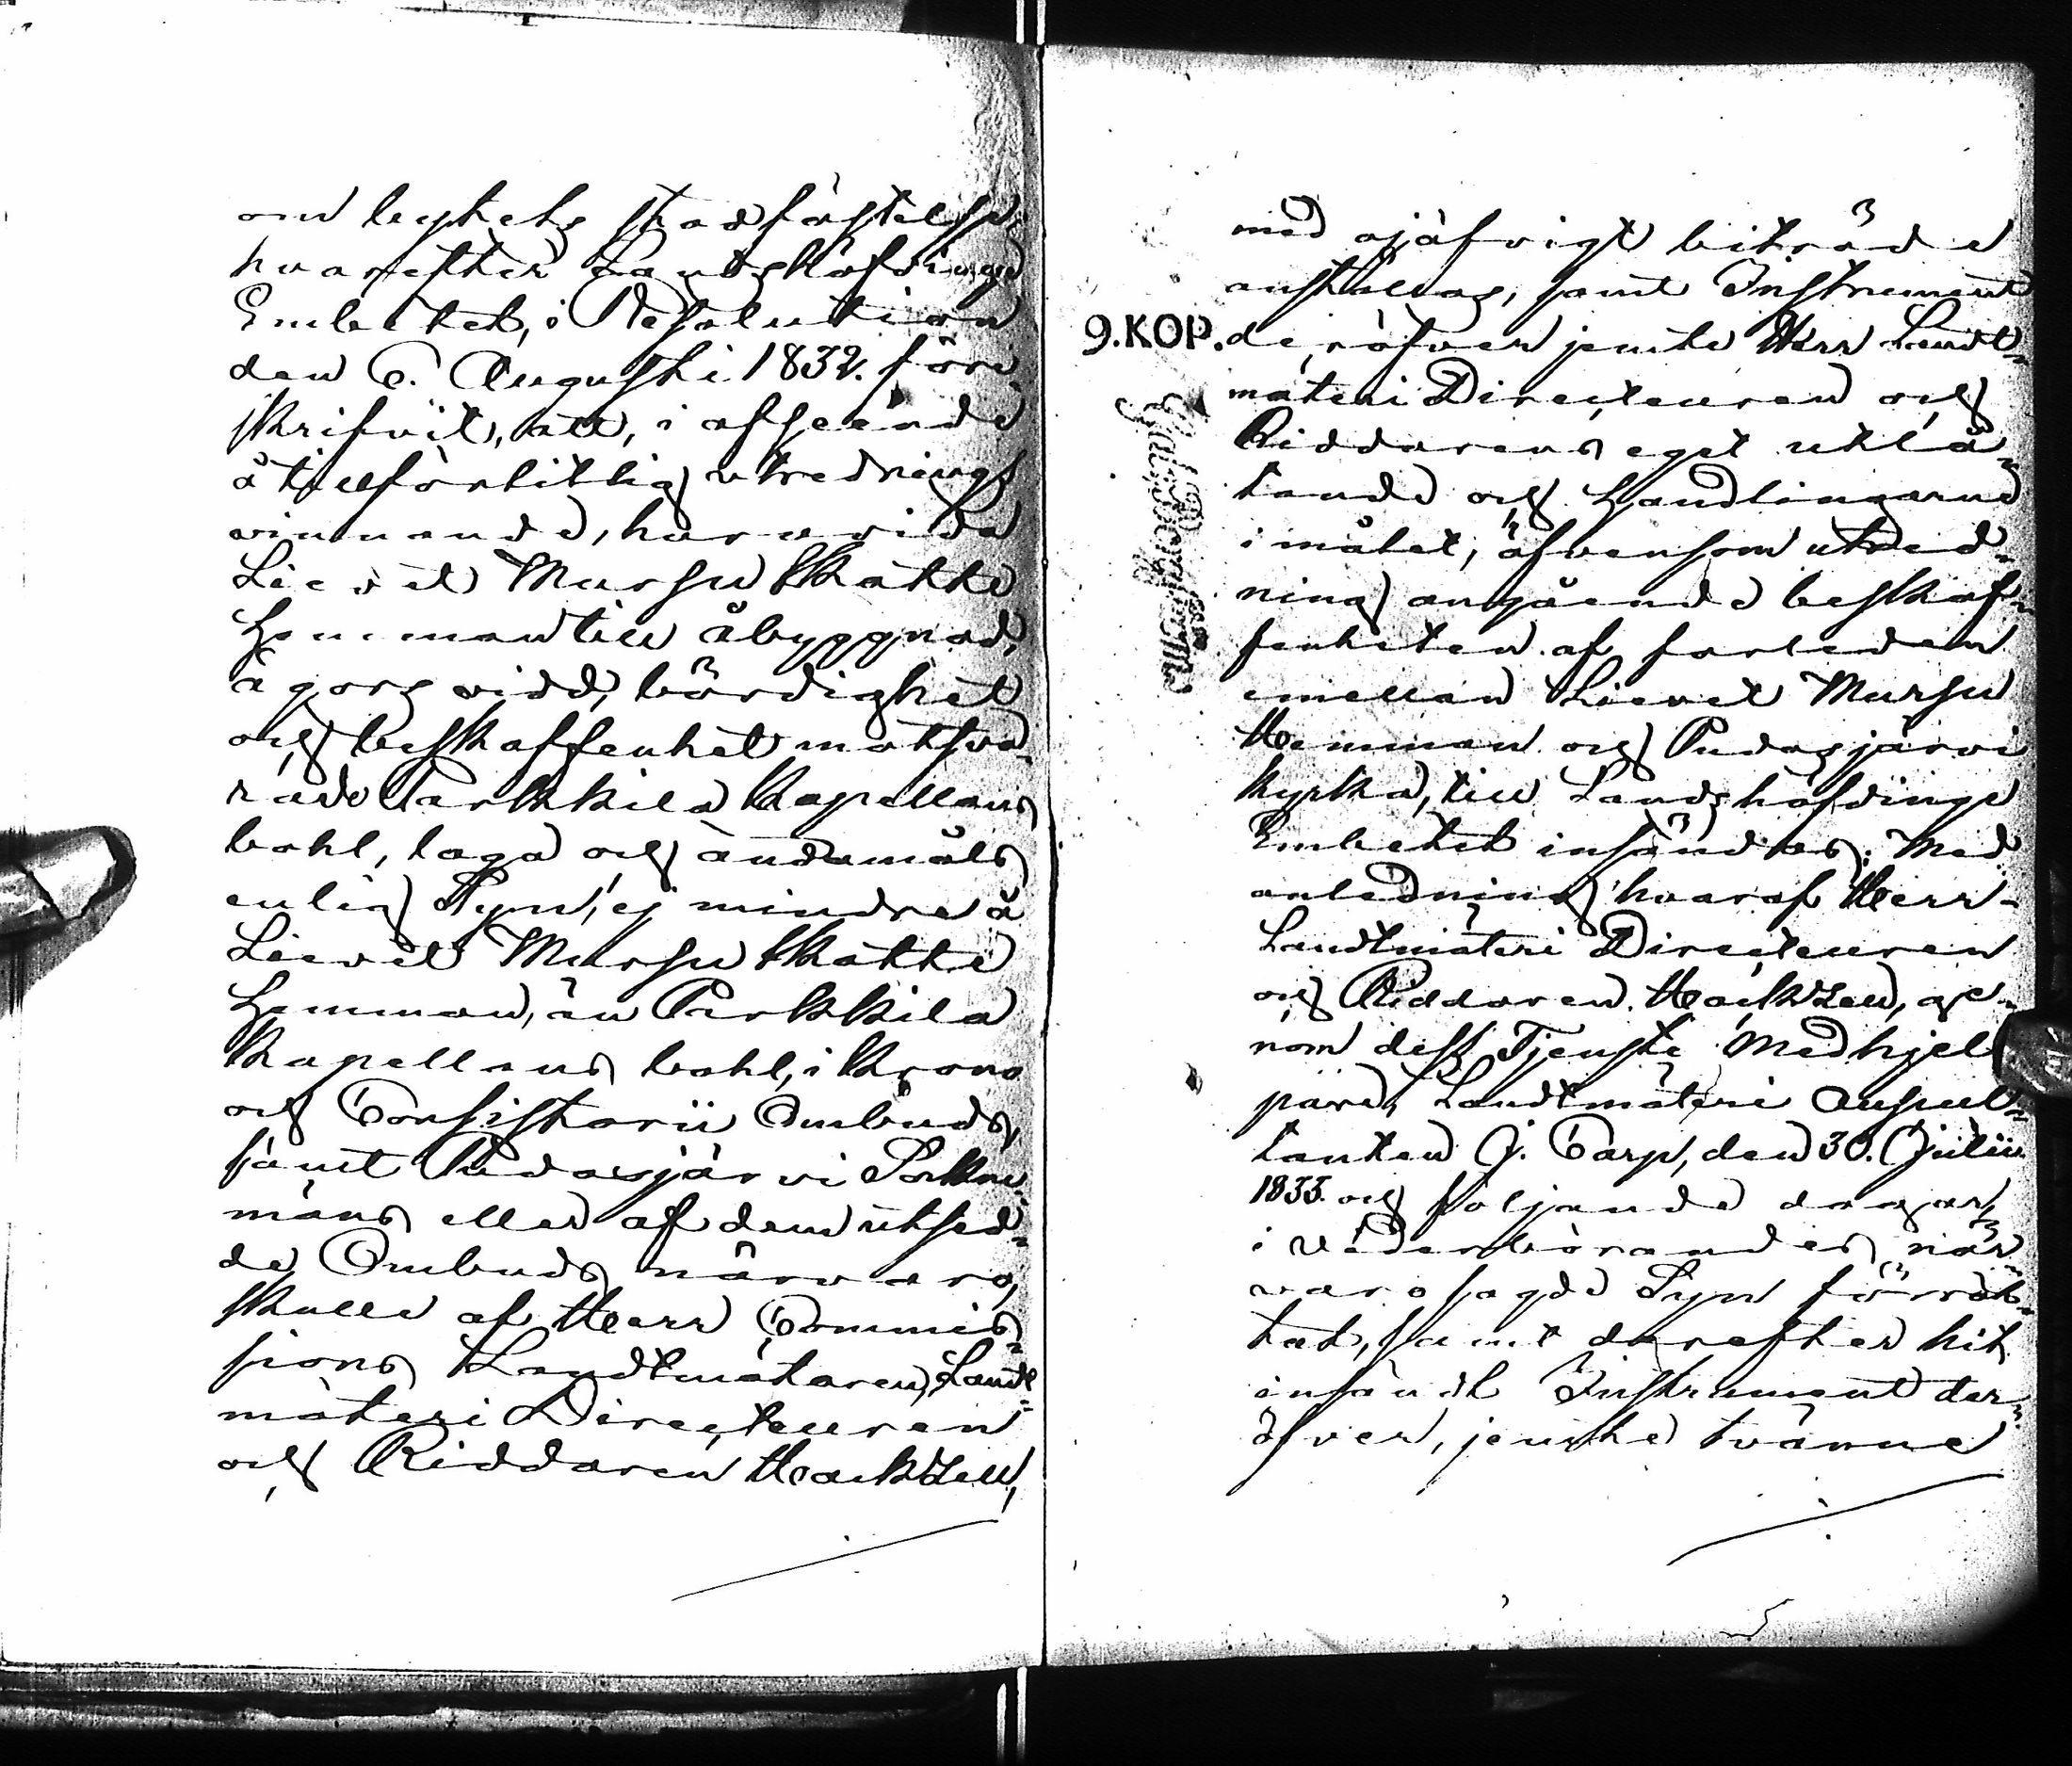 om bytets stadfästelse,
hvarefter Landshöfdinge
Embetet, i Resolution
den 6. Augusti 1832. före-
skrifvit, att, i afseende
å tillförlitlig utrednings
vinnande, huruvida
Lievet Mursu Skatte
Hemman till åbyggnad,
egors vidd, bördighet
och beskaffenhet motsva-
rade Parkkila Kapellans
bohl, laga och ändamåls
enlig Syn, ej mindre å
Lievet Mursu Skatte
Hemman, än Parkkila
Kapellans bohl, i Krono
och Consistorii Ombuds,
samt Pudasjärvi Sockne-
mäns eller af dem utsed-
da Ombuds närvaro,
skulle af Herr Commis-
sions Landtmätaren, Landt-
mäteri Directeuren
och Riddaren Hackzell,
med ojäfvigt biträde
anställas, samt Instrument
9.KOP. deröfver jemte Herr Landt-
mäteri Directeuren och
Riddarens eget utlå-
tande och Handlingarne
i målet, äfvensom utred-
ning angående beskaf-
fenheten af farleden
emellan Lievet Mursu
Hemman och Pudasjärvi
kyrka, till Landshöfdinge
Embetet insändas; Med
anledning hvaraf Herr
Landtmäteri Directeuren
och Riddaren Hackzell, ge-
nom dess Tjenste Medhjel-
pare, Landtmäteri Auscul-
tanten J. Carp, den 30. Julii
1833. och följande dagar,
i vederbörandes när-
varo sagde Syn förrät-
tat, samt derefter hit
insändt Instrument der-
öfver, jemte tvänne